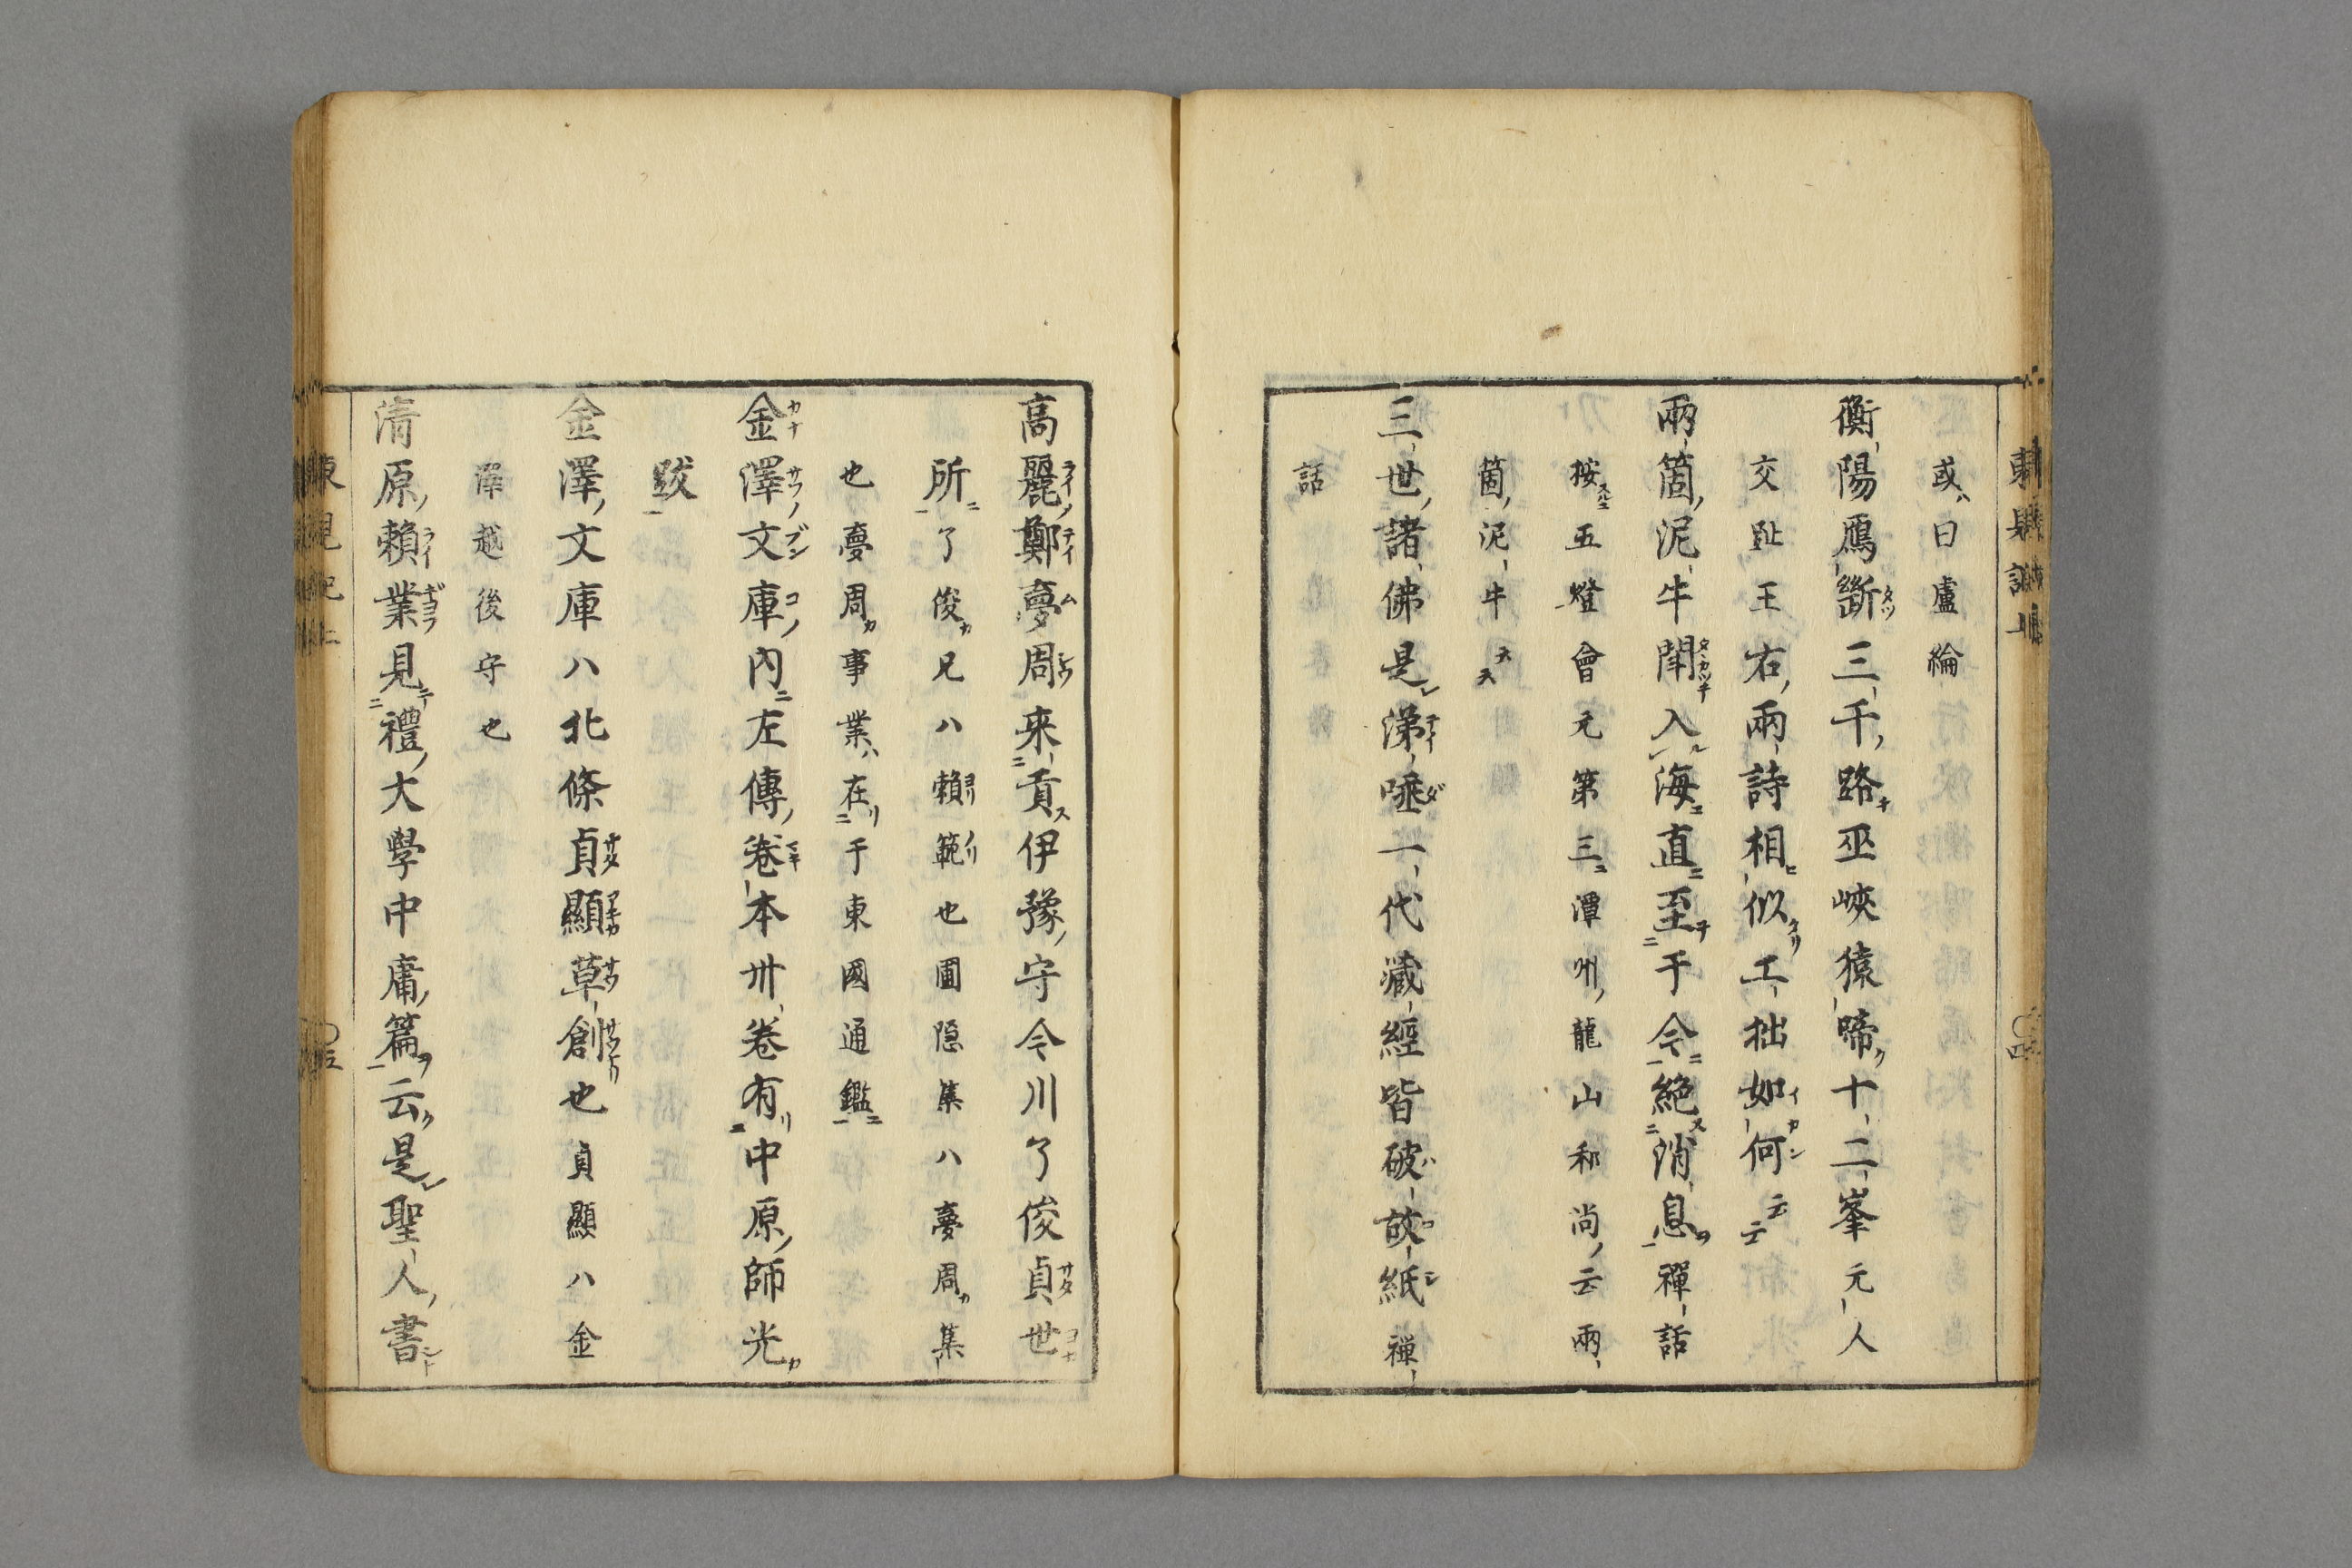 或曰盧綸
衡陽鴈斷三千路巫峽猿啼十二峯元人
交趾王右兩詩相似工拙如何云云
兩箇泥牛鬪入海直至于今絶消息禪話
按五燈會元第三潭州龍山和尚云兩
箇泥牛
三世諸佛是涕唾一代藏經皆破故紙禅
話
高麗鄭夢周来貢伊豫守今川了俊貞世
所了俊兄ハ頼範也圃隠集ハ夢周集
也夢周事業在于東國通鑑
金澤文庫内左傳巻本卅巻有中原師光
跋
金澤文庫ハ北條貞顯草創也貞顯ハ金
澤越後守也
清原頼業見禮大學中庸篇云是聖人書